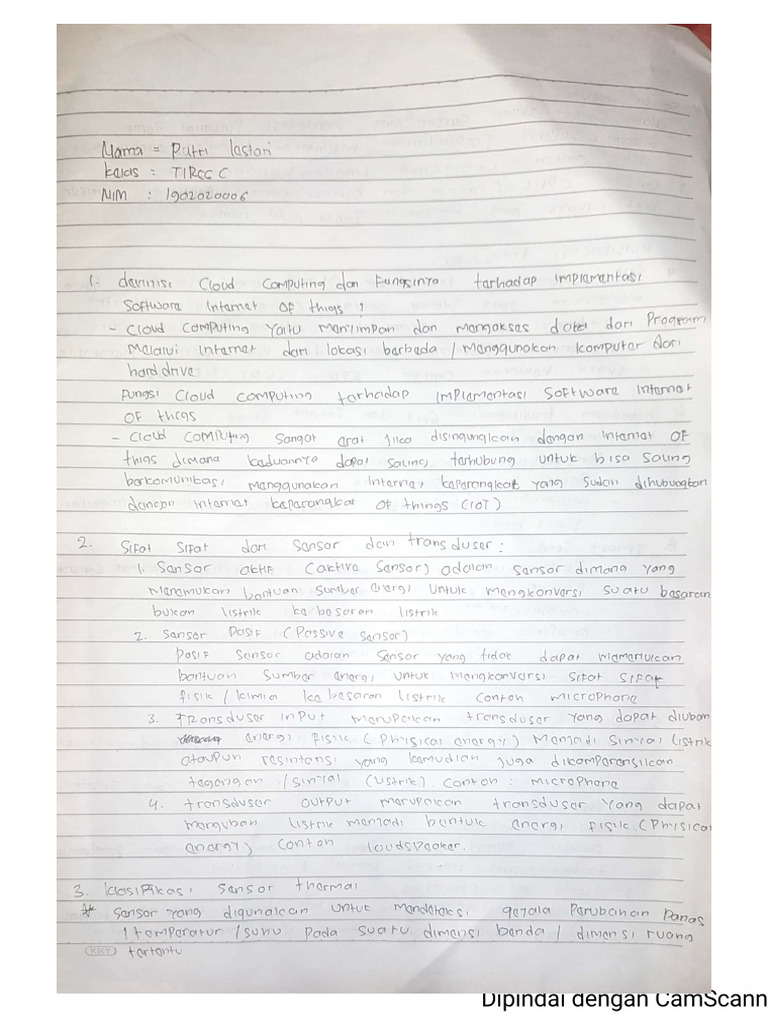 Nama = Putri lestari
kelas : TIRCG C
NIM : 1902020006
1. devinisi Cloud Computing dan Fungsinya terhadap implementasi
Software Internet OF thigs ?
- Cloud Computing Yaitu Menyimpan dan Mengakses data dari Program
Melalui Internet dari lokasi berbeda / Menggunakan komputer dari
hard drive
Fungsi Cloud Computing terhadap implementasi Software Internet
OF things
- Cloud Computing Sangat erat jika disingungkan dengan Internet OF
thigs dimana keduannya dapat saling terhubung untuk bisa Saling
berkomunikasi Menggunakan Internet keperangkat yang sudah dihubungkan
dengan internet keperangkat OF things (IOT)
2. Sifat Sifat dari Sensor dan transduser :
1. Sensor aktif (aktive Sensor) adalah sensor dimana yang
Memerlukan bantuan sumber energi untuk mengkonversi suatu besaran
bukan listrik ke besaran listrik
2. Sensor Pasif (Passive Sensor)
Pasif sensor adalah sensor yang tidak dapat Memerlukan
bantuan Sumber energi untuk mengkonversi Sifat Sifat
fisik / kimia ke besaran listrik Contoh Microphone
3. Transduser input Merupakan transduser yang dapat diubah
energi fisik (Physical energy) Menjadi Sinyal listrik
ataupun resintansi yang kemudian juga dikomparensikan
tegangan / sinyal (listrik). Contoh : Microphone
4. transduser output Merupakan transduser Yang dapat
mengubah listrik menjadi bentuk energi fisik (Phisical
energy) Contoh loudspeaker.
3. klasifikasi Sensor thermal
* Sensor yang digunakan untuk Mendeteksi gejala Perubahan Panas
/ temperatur / suhu pada suatu dimensi benda / dimensi ruang
KKY tertentu
Dipindai dengan CamScann